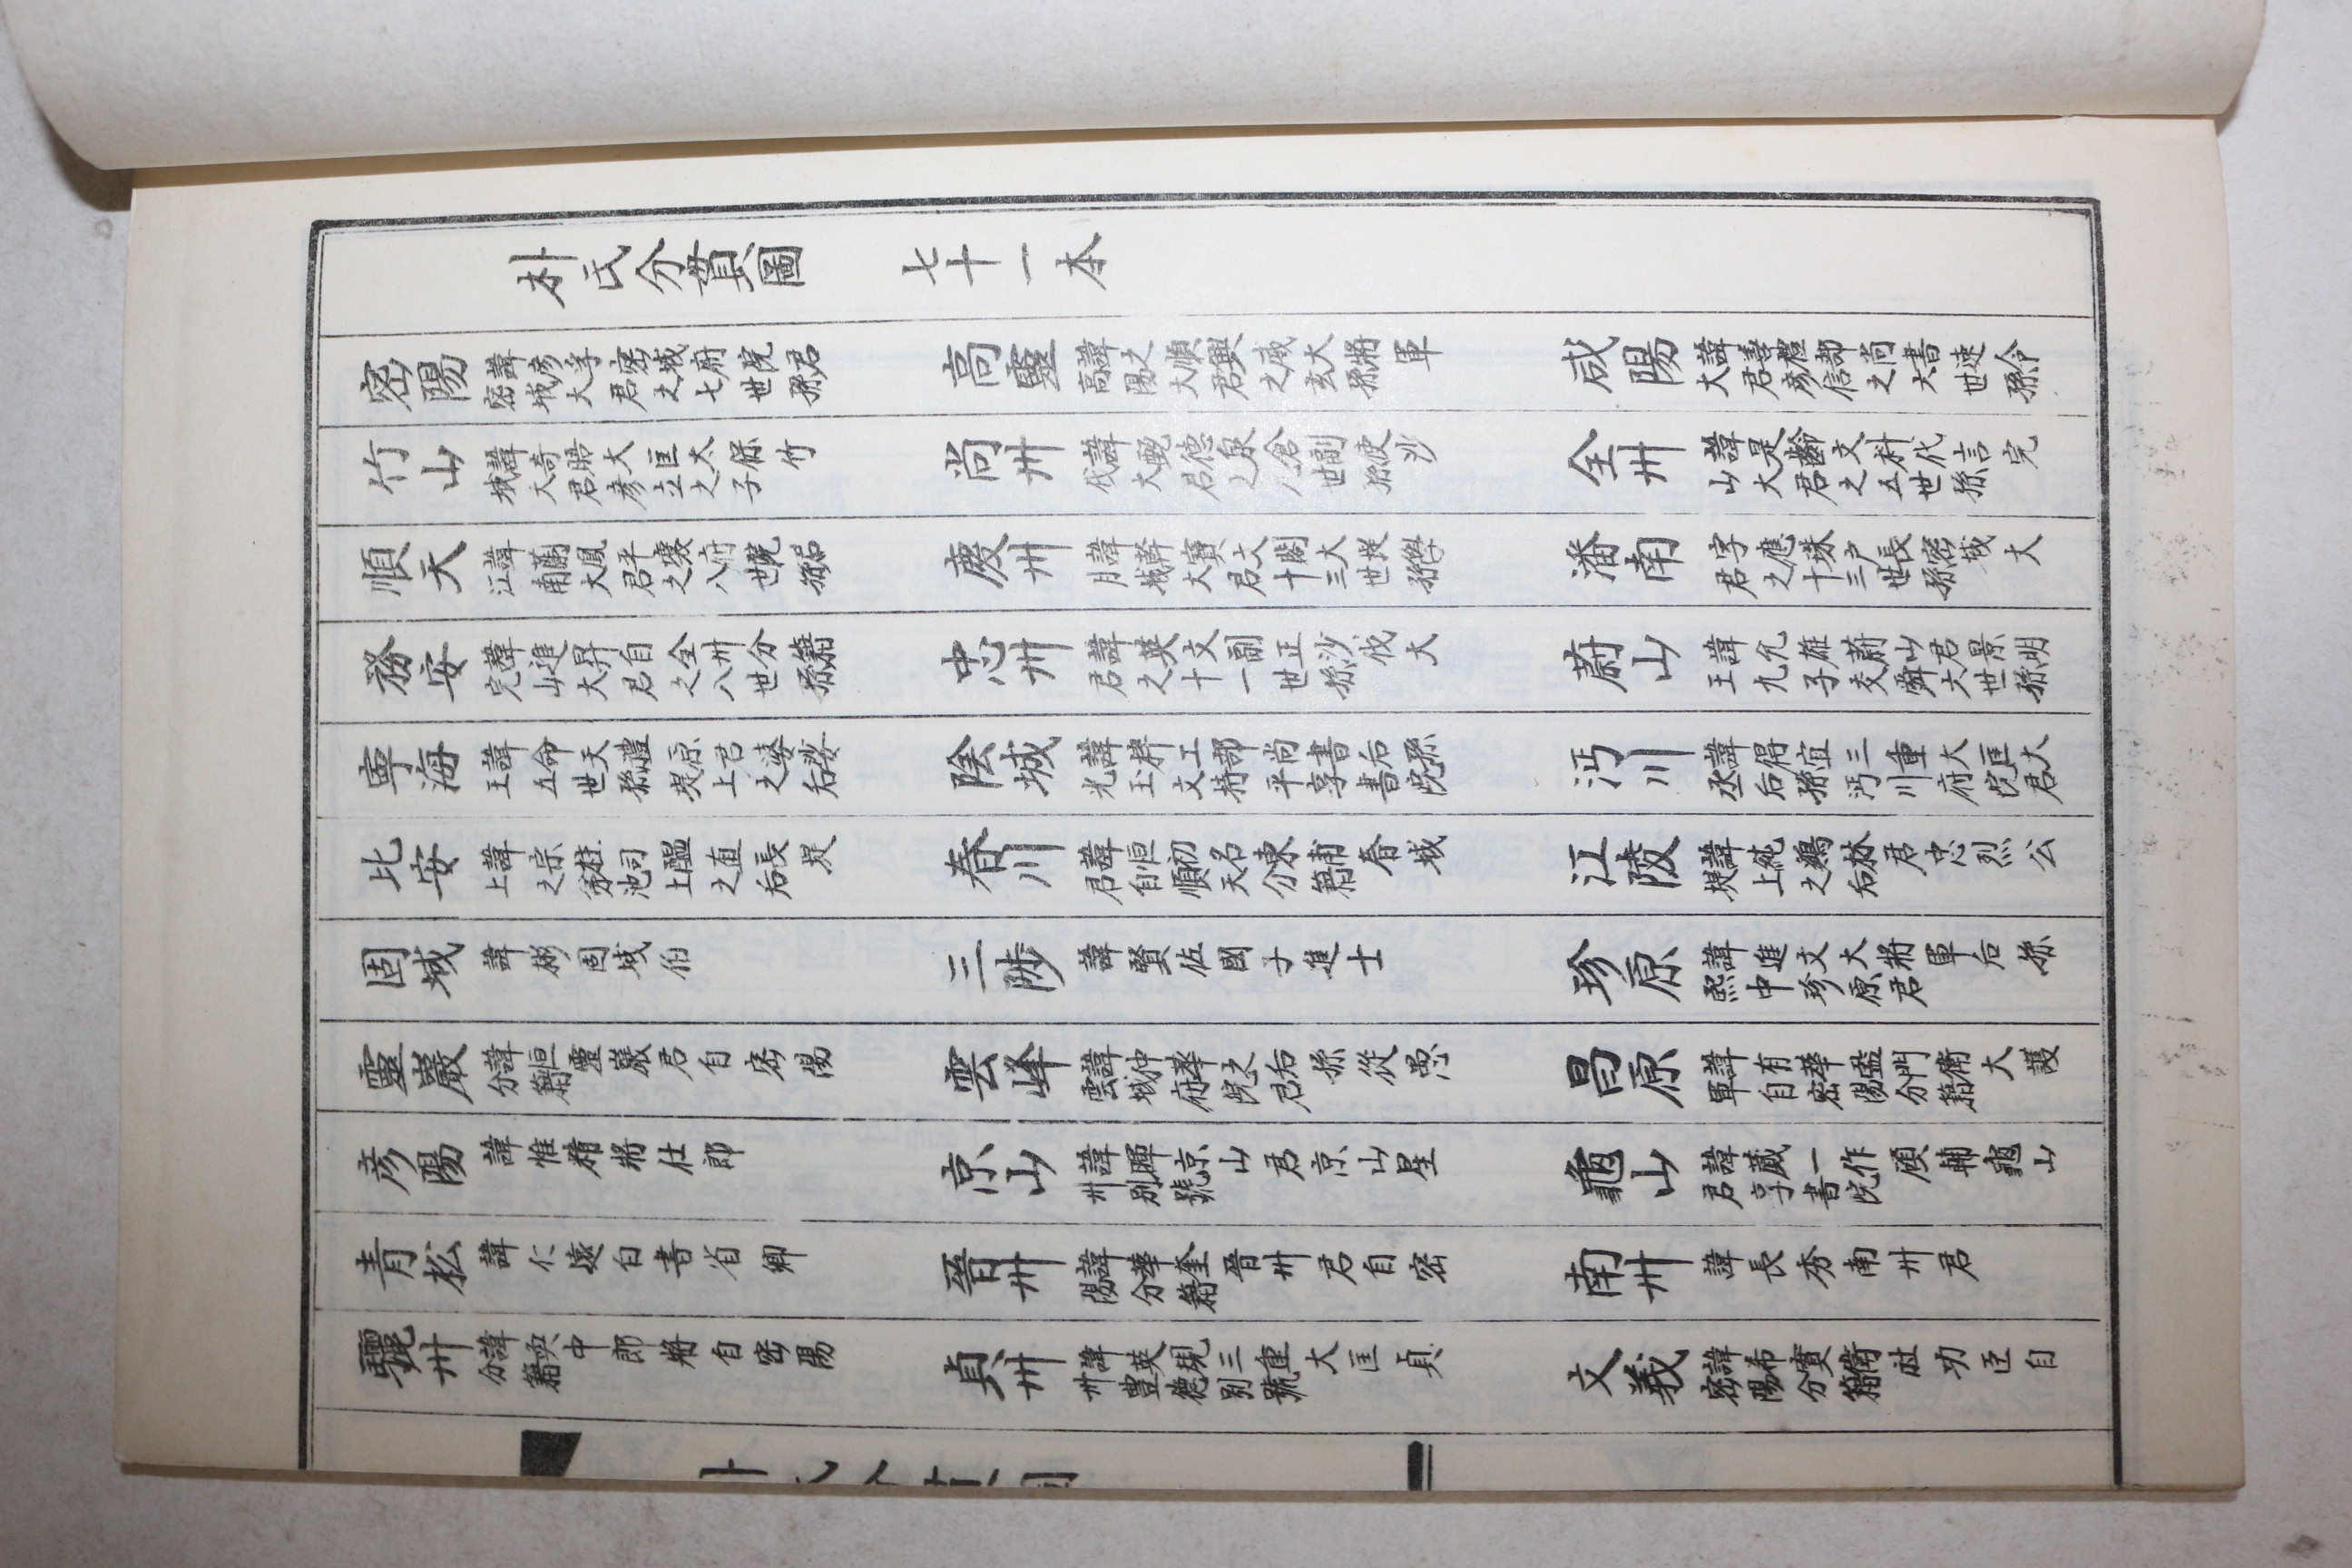 朴氏分貫圖 七十一本
密陽 諱彦孚密城府院君密城大君之七世孫
高靈 諱之順興威大將軍高陽大君之玄孫
咸陽 諱善禮部尚書速含大君彦信之六世孫
竹山 諱奇晤大匡太保竹城大君彦立之子
尚州 諱甄德泉倉副使沙伐大君之八世孫
全州 諱是齡文科代言完山大君之五世孫
順天 諱蘭鳳平壤府院君江南大君之八世孫
慶州 諱幹寶文閣大提學月城大君十三世孫
潘南 字應珠戶長密城大君之十三世孫
務安 諱進昇自全州分籍完山大君之八世孫
忠州 諱英文副正沙伐大君之十一世孫
蔚山 諱允雄蔚山君景明王九子交舜六世孫
寧海 諱命天禮原君婆娑王五世孫堤上之后
陰城 諱梓工部尚書后孫光玉文持平享書院
沔川 諱得宜三重大匡大丞后孫沔川府院君
比安 諱宗柱司醞直長堤上之弟池上之后
春川 諱恒初名東甫春城君自順天分籍
江陵 諱純鷄林君忠烈公堤上之后
固城 諱彬固城伯
三陟 諱賢佐國子進士
珍原 諱進文大將軍后孫熙中珍原君
靈巖 諱恒靈巖君自密陽分籍
雲峰 諱仲華之后孫從愚雲城府院君
昌原 諱有華監門衛大護軍自密陽分籍
彦陽 諱惟精將仕郎
京山 諱暉京山君京山星州別號
龜山 諱蕆一作頎輔龜山君享書院
青松 諱仁遠白書省卿
晉州 諱華奎晉州君自密陽分籍
南州 諱長秀南州君
驪州 諱奐中郎將自密陽分籍
貞州 諱英規三重大匡貞州豊德別號
文義 諱希實衛社功臣自密陽分籍